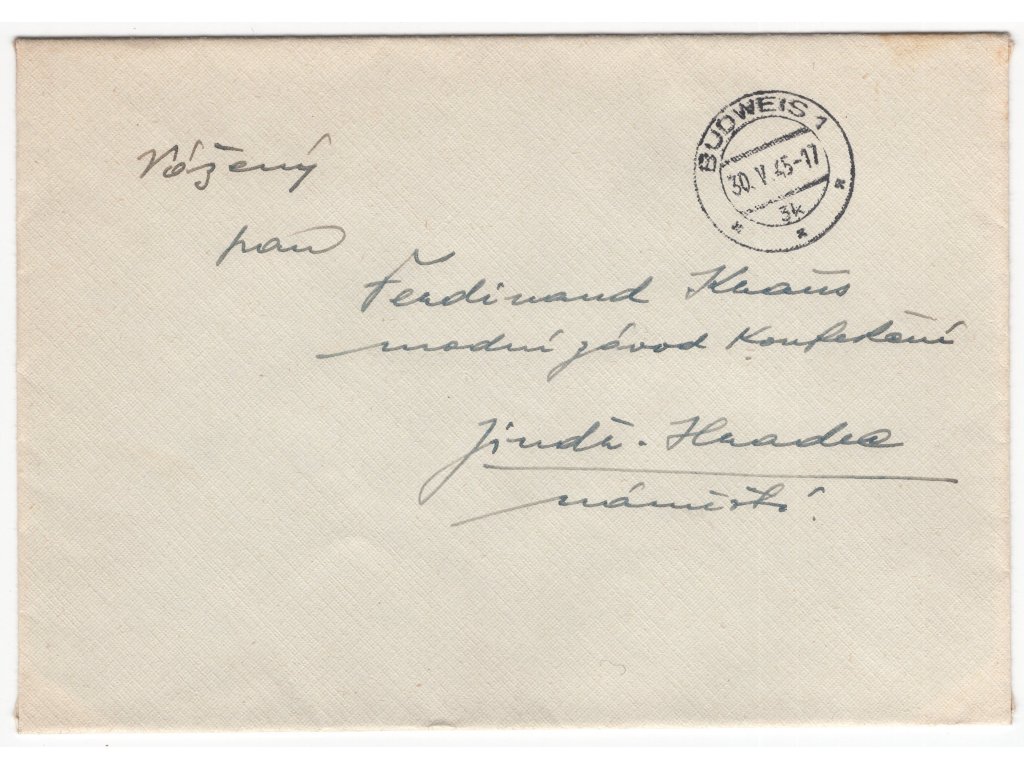 BUDWEIS 1
30. V. 45-17
3k
Vážený
pan
Ferdinand Kraus
modní závod Konfekční
Jindř. Hradec
náměstí.